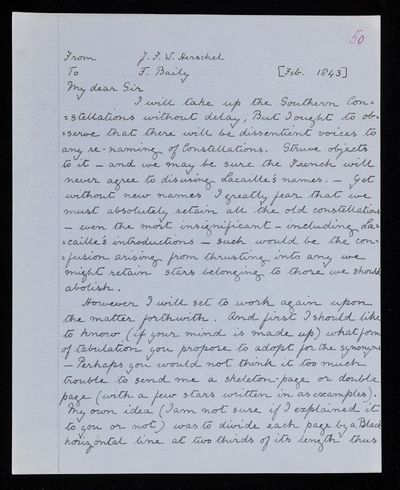 50
From J. F. W. Herschel
To F. Baily [Feb. 1843]
My dear Sir
I will take up the Southern Con=
=stellations without delay, But I ought to ob=
=serve that there will be dissentient voices to
any re-naming of Constellations. Struve objects
to it – and we may be sure the French will
never agree to disusing Lacaille's names. – Yet
without new names I greatly fear that we
must absolutely retain all the old constellations
– even the most insignificant – including La=
=caille's introductions – such would be the con=
=fusion arising from thrusting into any we
might retain stars belonging to those we should
abolish.
However I will set to work again upon
the matter forthwith. And first I should like
to know (if your mind is made up) what form
of tabulation you propose to adopt for the synonyms
– Perhaps you would not think it too much
trouble to send me a skeleton-page or double
page (with a few stars written in as examples).
My own idea (I am not sure if I explained it
to you or not) was to divide each page by a Black
horizontal line at two thirds of its length thus